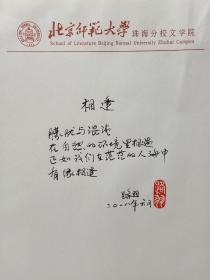 北京师范大学 珠海分校文学院
School of Literature Beijing Normal University Zhuhai Campus
相逢
朦胧与混浊
在自然的环境里相遇
正如我们在茫茫的人海中
有缘相逢
二〇一八年六月